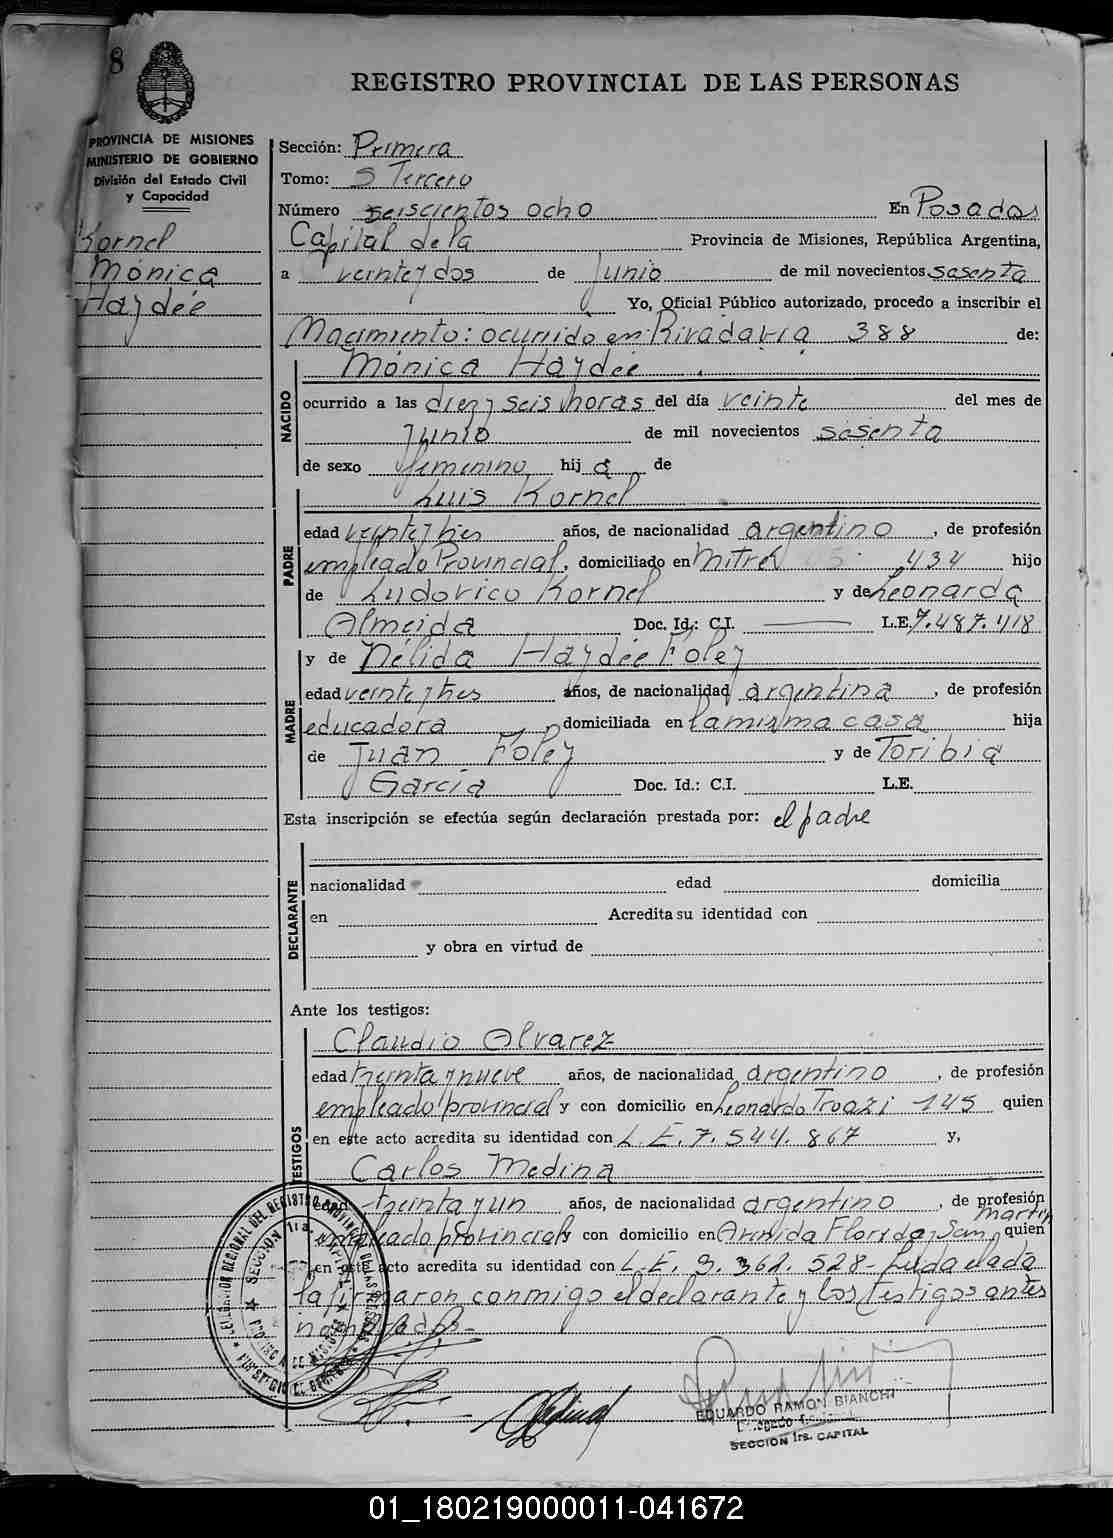 8
REGISTRO PROVINCIAL DE LAS PERSONAS
PROVINCIA DE MISIONES
MINISTERIO DE GOBIERNO
División del Estado Civil
y Capacidad
Kornel
Mónica
Haydée
Sección: Primera
Tomo: S Tercero
Número seiscientos ocho En Posadas
Capital de la Provincia de Misiones, República Argentina,
a veinte y dos de Junio de mil novecientos sesenta
Yo, Oficial Público autorizado, procedo a inscribir el
Nacimiento: ocurrido en Rivadavia 388 de:
NACIDO
Mónica Haydée
ocurrido a las diez y seis horas del día veinte del mes de
Junio de mil novecientos sesenta
de sexo femenino hij a de
Luis Kornel
PADRE
edad veinte y tres años, de nacionalidad argentino, de profesión
empleado Provincial, domiciliado en Mitre 434 hijo
de Ludovico Kornel y de Leonarda
Almeida Doc. Id.: C.I. L.E. 7.487.418
y de Nélida Haydée Foley
MADRE
edad veinte y tres años, de nacionalidad argentina, de profesión
educadora, domiciliada en la misma casa hija
de Juan Foley y de Toribia
García Doc. Id.: C.I. L.E.
Esta inscripción se efectúa según declaración prestada por: el padre
DECLARANTE
nacionalidad edad domicilia
en Acredita su identidad con
y obra en virtud de
Ante los testigos:
TESTIGOS
Claudio Alvarez
edad treinta y nueve años, de nacionalidad argentino, de profesión
empleado provincial y con domicilio en Leonardo Troazi 145 quien
en este acto acredita su identidad con L.E. 7.544.867 y,
Carlos Medina
edad treinta y un años, de nacionalidad argentino, de profesión
empleado provincial y con domicilio en Avenida Florida, San Martín quien
en este acto acredita su identidad con L.E. 9.362.528- Leída el acta
la firmaron conmigo el declarante y los testigos antes
nombrados-
EDUARDO RAMON BIANCHI
SECCION 1ra. CAPITAL
01_180219000011-041672